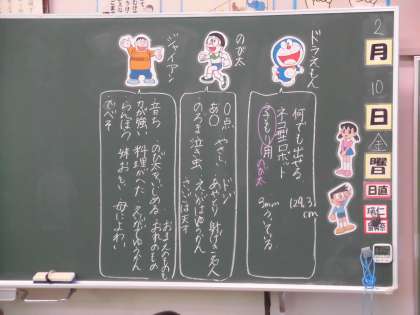 2
月
10
日
金
曜
日
日直
ドラえもん
何でも出せる
ネコ型ロボット
129.3
cm
子もり用 のび太
3mm ういている
のび太
0点 やさしい ドジ
あやとり 射げき名人
のろま 泣き虫 えいがはゆうかん
ジャイアン
おまえのものも
音ち のび太をいじめる おれのもの
力が強い 料理がへた えいがでゆうかん
らんぼう 妹おもい 母によわい
でべそ